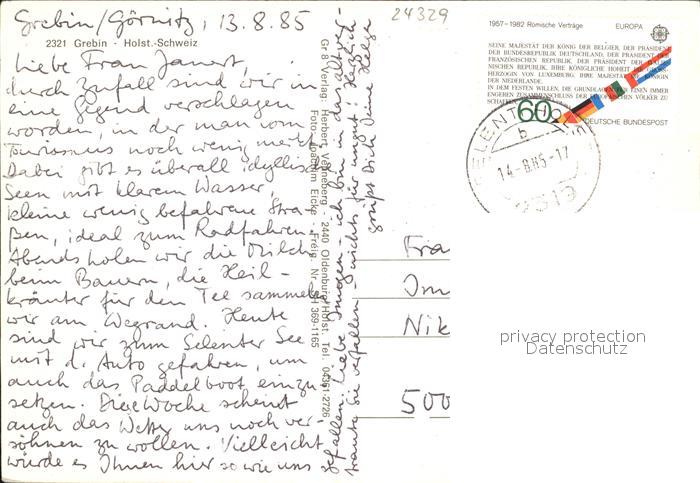 Grebin/Görnitz, 13.8.85
24329
2321 Grebin - Holst.-Schweiz
Liebe Frau Janert,
durch Zufall sind wir in
eine Gegend verschlagen
worden, in der man vom
Tourismus noch wenig merkt.
Dabei gibt es überall idyllische
Seen mit klarem Wasser,
kleine wenig befahrene Stra-
ßen, ideal zum Radfahren.
Abends holen wir die Milch
beim Bauern, die Heil-
kräuter für den Tee sammeln
wir am Wegrand. Heute
sind wir zum Selenter See
mit d. Auto gefahren, um
auch das Paddelboot einzu-
setzen. Diese Woche scheint
auch das Wetter uns noch ver-
söhnen zu wollen. Vielleicht
würde es Ihnen hier so wie uns
gefallen. Liebe Imogen - ich bin in die alt
traute Sie verfallen - nichts für ungut! Herzlich
grüßt Dich Deine Helga
Gr 8 Verlag: Herbert Venneberg - 2440 Oldenburg/Holst. Tel. 04361-2726
Foto: Joachim Eicke - Freig. Nr. SH 369-1165
1957-1982 Römische Verträge EUROPA
SEINE MAJESTÄT DER KÖNIG DER BELGIER, DER PRÄSIDENT
DER BUNDESREPUBLIK DEUTSCHLAND, DER PRÄSIDENT DER
FRANZÖSISCHEN REPUBLIK, DER PRÄSIDENT DER ITALIE-
NISCHEN REPUBLIK, IHRE KÖNIGLICHE HOHEIT DIE GROSS-
HERZOGIN VON LUXEMBURG, IHRE MAJESTÄT DIE KÖNIGIN
DER NIEDERLANDE.
IN DEM FESTEN WILLEN, DIE GRUNDLAGEN FÜR EINEN IMMER
ENGEREN ZUSAMMENSCHLUSS DER EUROPÄISCHEN VÖLKER ZU
SCHAFFEN
60
DEUTSCHE BUNDESPOST
SELENT, HOLST
b
14.-8.85-17
2313
Fra
Im
Nik
500
privacy protection
Datenschutz